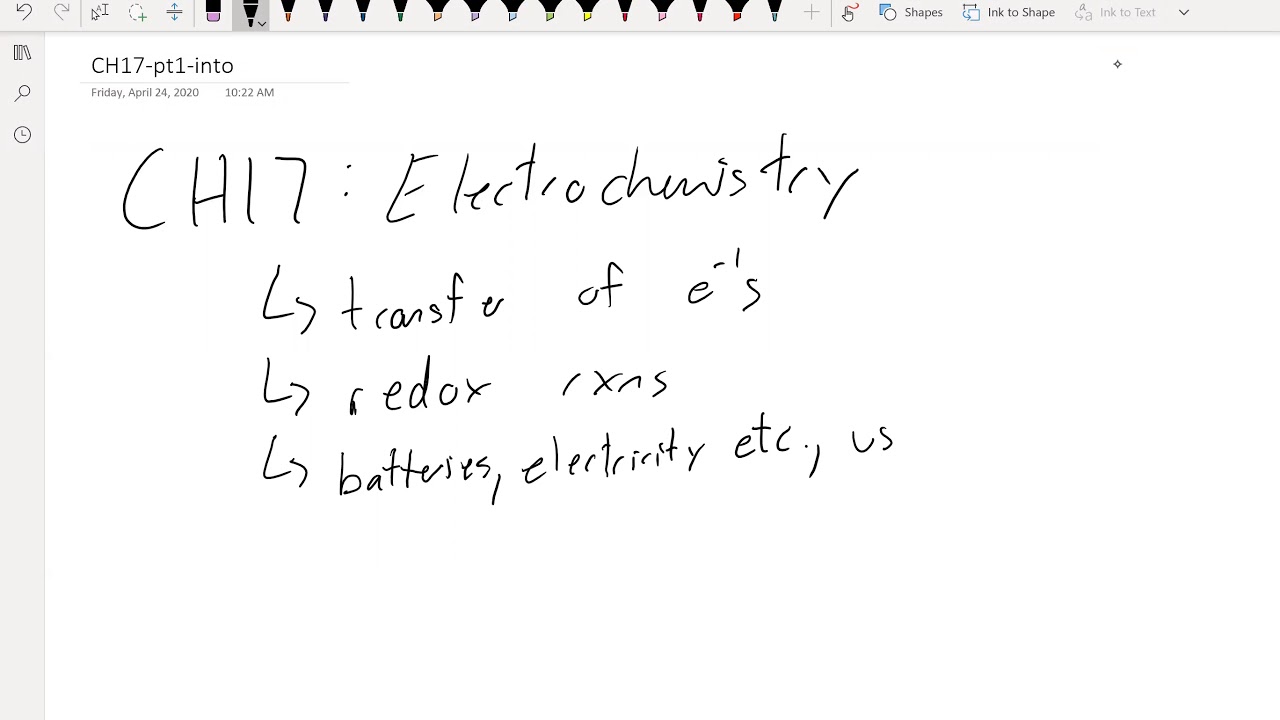 Shapes
Ink to Shape
Ink to Text
CH17-pt1-into
Friday, April 24, 2020 10:22 AM
CH17: Electrochemistry
↳ transfer of e⁻'s
↳ redox rxns
↳ batteries, electricity etc., us